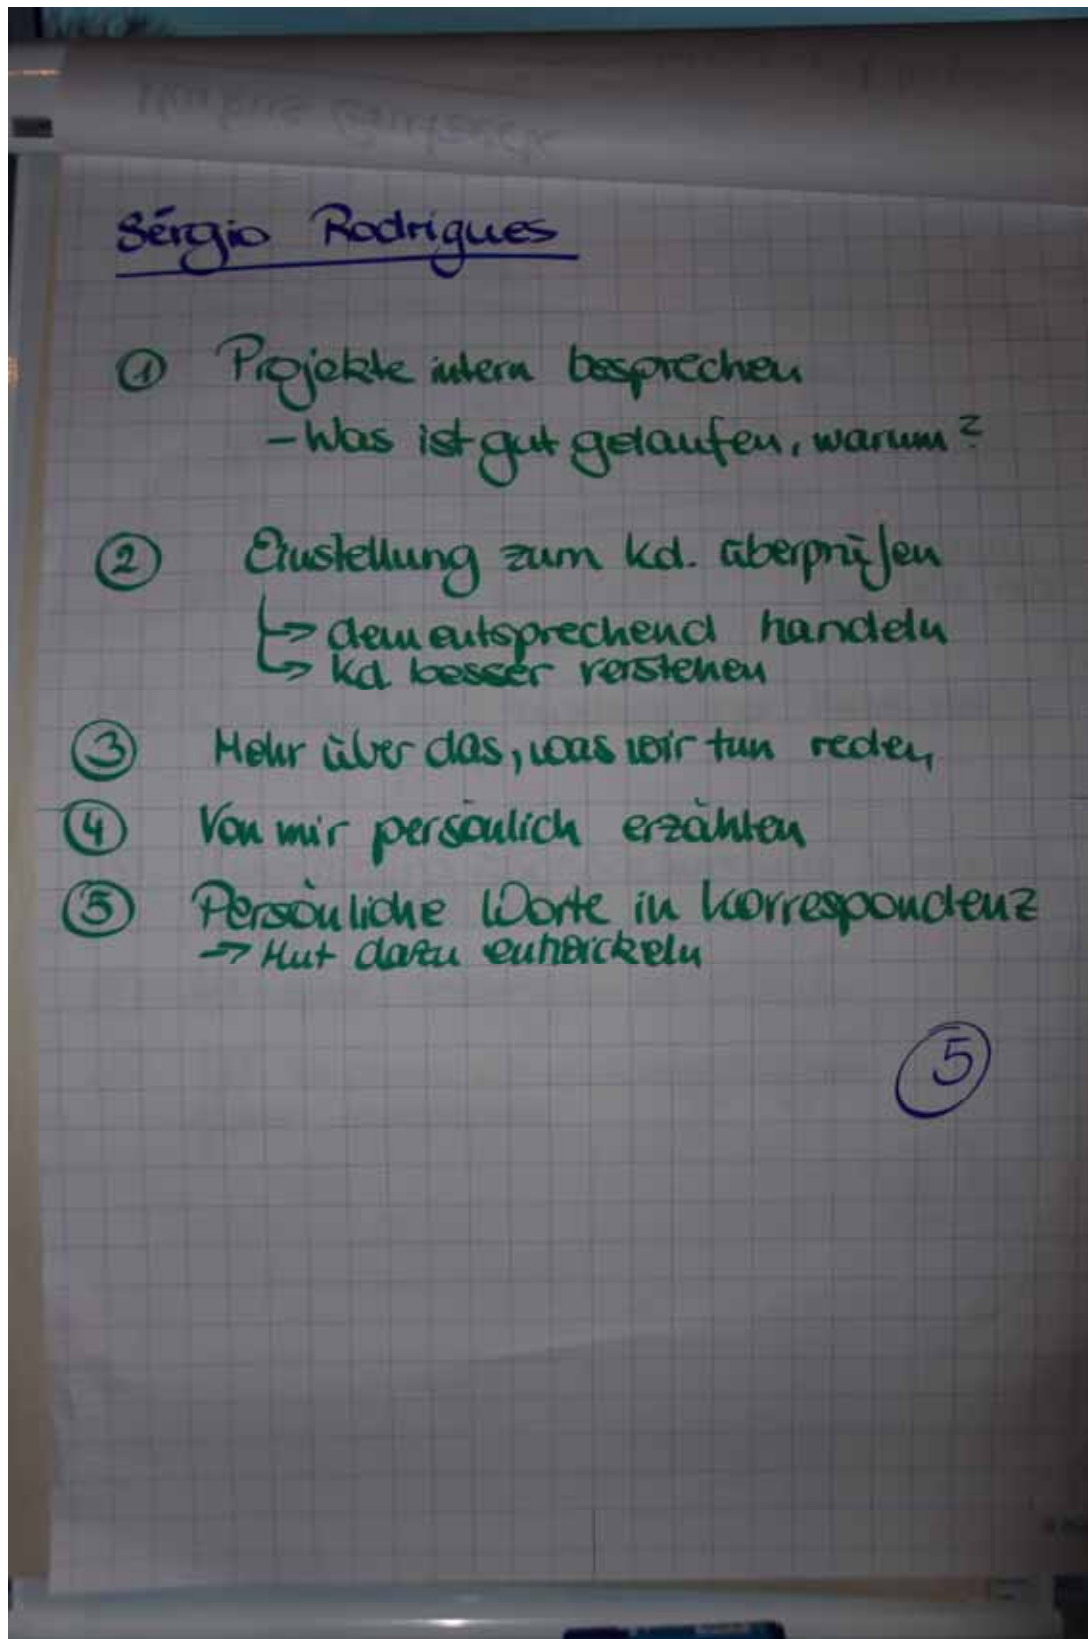 Sérgio Rodrigues
① Projekte intern besprechen
- Was ist gut gelaufen, warum?
② Einstellung zum Kd. überprüfen
↳ dementsprechend handeln
↳ Kd besser verstehen
③ Mehr über das, was wir tun reden
④ Von mir persönlich erzählen
⑤ Persönliche Worte in Korrespondenz
→ Mut dazu entwickeln
⑤